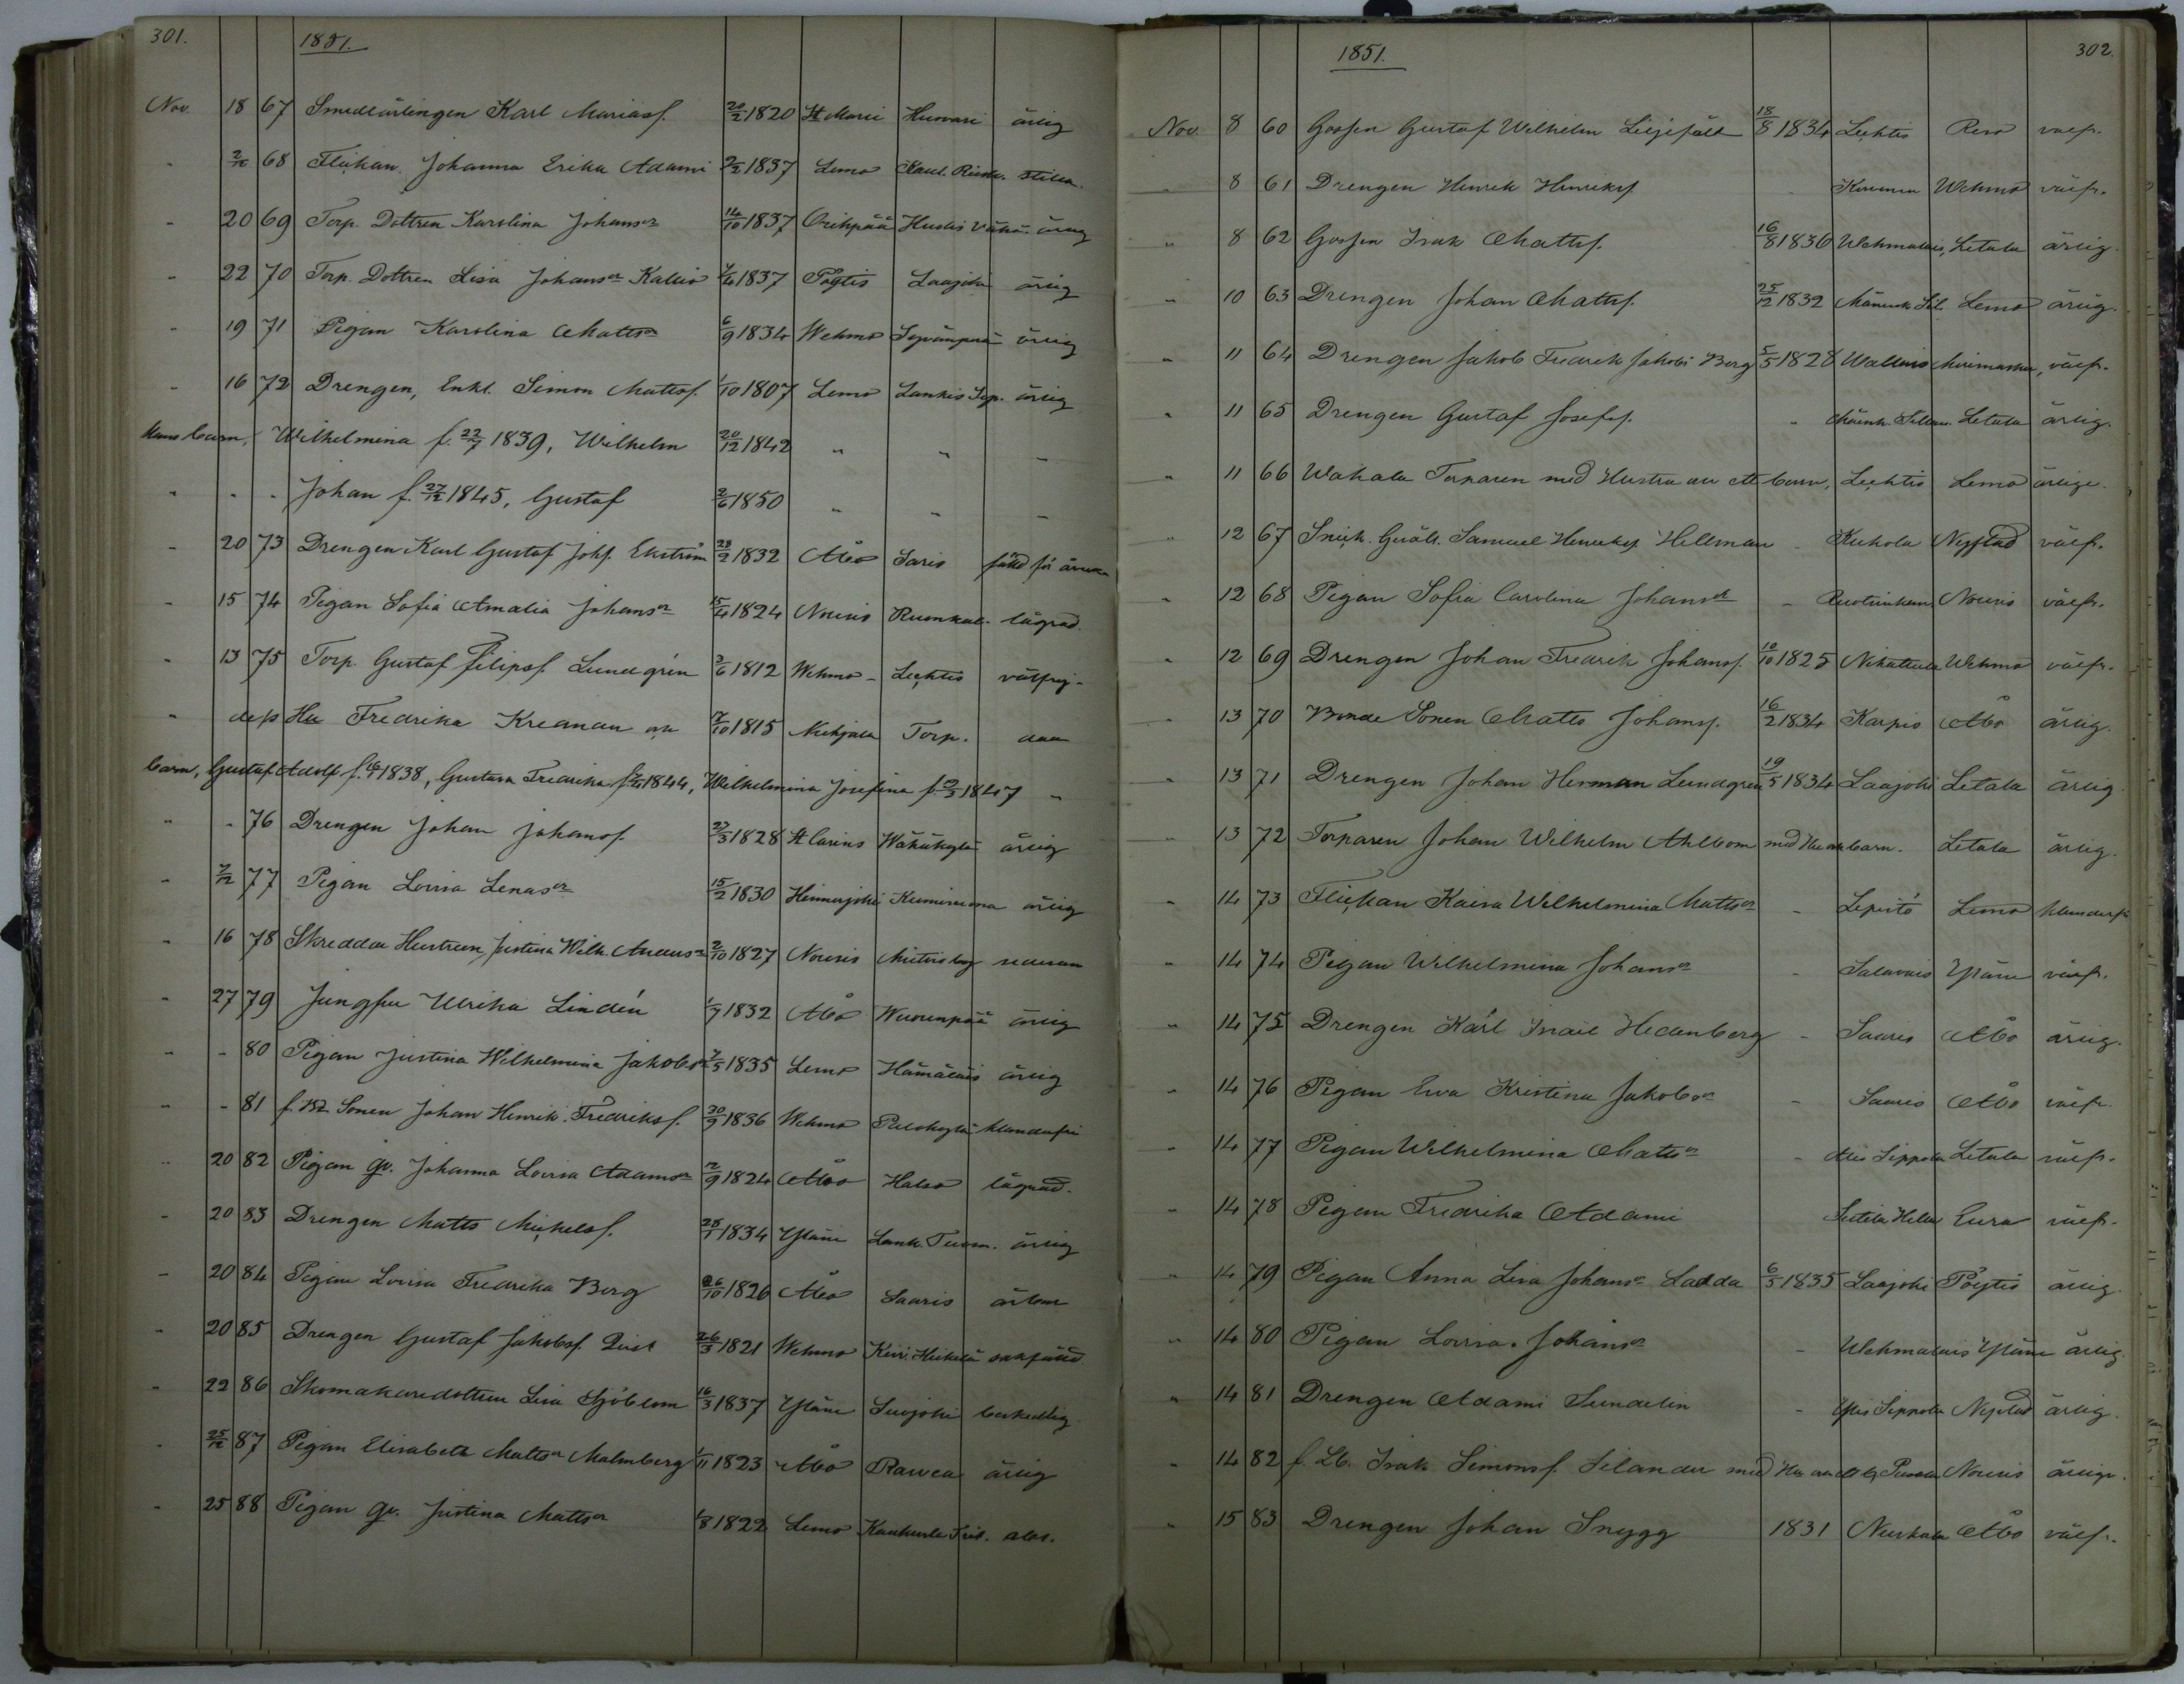 301.
1851.
Nov. 18 67 Smedlärlingen Karl Mariasf. 20/2 1820 St Marie Huovari ärlig
" 2/12 68 Flickan Johanna Erika Adami 2/2 1837 Lemo stilla.
" 20 69 Torp. Dottren Karolina Johansr 14/10 1837 Oripää Huolis Vähä ärlig
" 22 70 Torp. Dottren Lisa Johansr Kallio 1837 Pöytis Laajoki ärlig
" 19 71 Pigan Karolina Mattsr 6/9 1834 Wehmo ärlig
" 16 72 Drengen, Enkl. Simon Mattsf. 1/10 1807 Lemo Lankis ärlig
Hans barn, Wilhelmina f. 22/7 1839, Wilhelm 20/12 1842 " " "
" " " Johan f. 27/12 1845, Gustaf 2/6 1850 " " "
" 20 73 Drengen Karl Gustaf Johsf. Ekström 28/9 1832 Åbo Saris
" 15 74 Pigan Sofia Amalia Johansr 15/4 1824 Nousis lägrad.
" 13 75 Torp. Gustaf Filipsf. Lundgrén 3/6 1812 Wehmo Lechtis välfrejd
" dess Hu Fredrika 7/10 1815 Torp.
barn, Gustaf Adolf f. 1838, Gustava Fredrika f. 1844, Wilhelmina Josefina f. 1847 "
" " 76 Drengen Johan Johansf. 27/3 1828 St Carins Wähäkylä ärlig
" 7/12 77 Pigan Lovisa Lenasr 15/2 1830 Hinnerjoki ärlig
" 16 78 Skreddar Hustrun Justina Wilh. Andersr 2/10 1827 Nousis
" 27 79 Jungfru Ulrika Lindén 1/7 1832 Åbo Wuorenpää ärlig
" " 80 Pigan Justina Wilhelmina Jakobsr 7/5 1835 Lemo Hämäläis ärlig
" " 81 f. Sonen Johan Henrik Fredriksf. 30/9 1836 Wehmo Palokylä klanderfri
" 20 82 Pigan qv. Johanna Lovisa Adamsr 12/9 1824 Åbo Halso lägrad.
" 20 83 Drengen Matts Michelsf. 1834 Yläne ärlig
" 20 84 Pigan Lovisa Fredrika Berg 26/10 1826 Åbo Saaris
" 20 85 Drengen Gustaf Jakobsf. Qvist 26/5 1821 Wehmo
" 22 86 Skomakaredottren Lisa Sjöblom 16/3 1837 Yläne Suojoki beskedlig
" 25/12 87 Pigan Elisabeth Mattsr Malmberg 1/11 1823 Åbo Rawea ärlig
" 25 88 Pigan qv. Justina Mattsr 1/8 1822 Lemo
302.
1851.
Nov. 8 60 Gossen Gustaf Wilhelm Liljefält 18/8 1834 Lechtis Reso välfr.
" 8 61 Drengen Henrik Henriksf " Wehmo välfr.
" 8 62 Gossen Isak Mattsf. 16/8 1836 Wehmalais, Letala ärlig.
" 10 63 Drengen Johan Mattsf. 25/12 1832 Lemo ärlig.
" 11 64 Drengen Jakob Fredrik Jakobi Berg 5/5 1828 Wallais Mirimasku, välfr.
" 11 65 Drengen Gustaf Josefsf. " Letala ärlig.
" 11 66 Wakala Torparen med Hustru och ett barn, Lechtis Lemo ärlige.
" 12 67 Snick. Gesäll. Samuel Henriksf Hellman " Kukola Nystad välfr.
" 12 68 Pigan Sofia Carolina Johansdr " Nousis välfr.
" 12 69 Drengen Johan Fredrik Johansf. 10/10 1825 Wehmo välfr.
" 13 70 Bonde Sonen Matts Johansf. 16/2 1834 Karpis Åbo ärlig.
" 13 71 Drengen Johan Herman Lundgren 19/5 1834 Laajoki Letala ärlig
" 13 72 Torparen Johan Wilhelm Ahlbom med Hu och barn. Letala ärlig.
" 14 73 Flickan Kaisa Wilhelmina Mattsr " Lepistö Lemo klanderfri
" 14 74 Pigan Wilhelmina Johansr " Salavais Yläne välfr.
" 14 75 Drengen Karl Hedenberg " Saaris Åbo ärlig.
" 14 76 Pigan Ewa Kristina Jakobsr " Saaris Åbo välfr.
" 14 77 Pigan Wilhelmina Mattsr " Alis Sippola Letala välfr.
" 14 78 Pigan Fredrika Adami Eura välfr.
" 14 79 Pigan Anna Lisa Johansr Ladda 6/5 1835 Laajoki Pöytis ärlig.
" 14 80 Pigan Lovisa Johansr " Wehmalais Yläne ärlig.
" 14 81 Drengen Adami Sundelin " Ylis Sippola Nystad ärlig.
" 14 82 f. Lb. Isak Simonsf. Silander med Hu Nousis ärlige.
" 15 83 Drengen Johan Snygg 1831 Nuskala Åbo välfr.